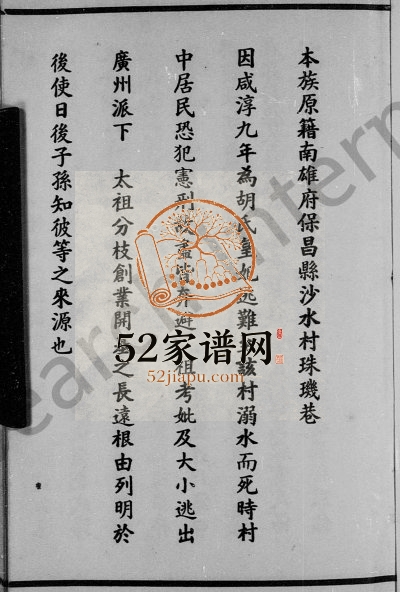 本族原籍南雄府保昌縣沙水村珠璣巷
因咸淳九年為胡氏皇妃逃難到該村溺水而死時村
中居民恐犯憲刑故盡皆奔避 祖考妣及大小逃出
廣州派下 太祖分枝創業開基之長遠根由列明於
後使日後子孫知彼等之來源也
52家谱网
52jiapu.com
earch Intern